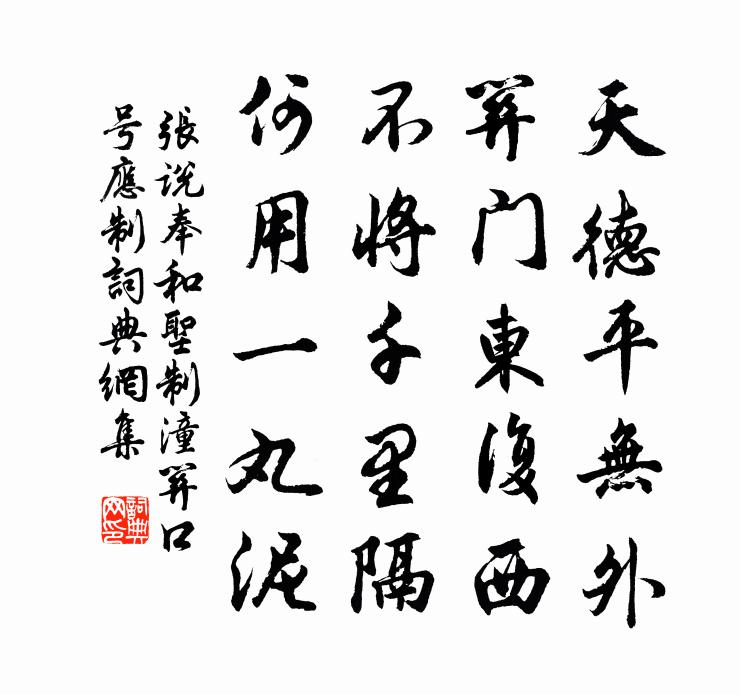 天德平無外
關門東復西
不將千里隔
何用一丸泥
張說奉和聖制潼關口
号應制詞典網集
詞典
网印